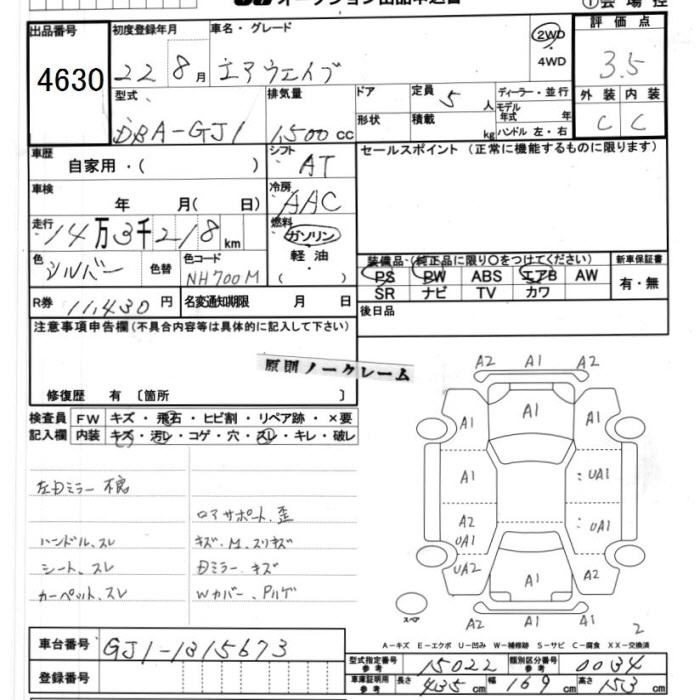 オークション出品申込書
①会場控
出品番号
4630
初度登録年月
22 8月
車名・グレード
エアウェイブ
2WD
4WD
評価点
3.5
型式
DBA-GJ1
排気量
1,500cc
ドア
形状
定員 5 人
積載 kg
ディーラー・並行
モデル年式 年
ハンドル 左・右
外装 内装
C C
車歴
自家用・( )
シフト AT
セールスポイント(正常に機能するものに限ります)
車検
年 月( 日)
冷房 AAC
走行
14万3千218km
燃料
ガソリン
軽油
・
( )
色 シルバー
色替
色コード
NH700M
装備品・(純正品に限り○をつけてください)
PS PW ABS エアB AW
SR ナビ TV カワ
新車保証書
有・無
R券 11,430円
名変通知期限 月 日
後日品
注意事項申告欄(不具合内容等は具体的に記入して下さい)
原則ノークレーム
修復歴 有〔箇所 〕
検査員 FW キズ・飛石・ヒビ割・リペア跡・×要
記入欄 内装 キズ・汚レ・コゲ・穴・スレ・キレ・破レ
左Dミラー不良
ロアサポート歪
ハンドル、スレ
キズ、M、スリキズ
シート、スレ
Dミラー、キズ
カーペット、スレ
Wカバー、ハゲ
A2 A1 A2
A1 A1 A1
A1 UA1
A2 UA1 UA1
UA2 A1 A2
スペア
A2 A1 A1
2
A－キズ E－エクボ U－凹み W－補修跡 S－サビ C－腐食 XX－交換済
車台番号 GJ1-1315673
型式指定番号 参考 15022
類別区分番号 参考 0034
登録番号
車庫証明用 参考
長さ 435cm 幅 169cm 高さ 153cm